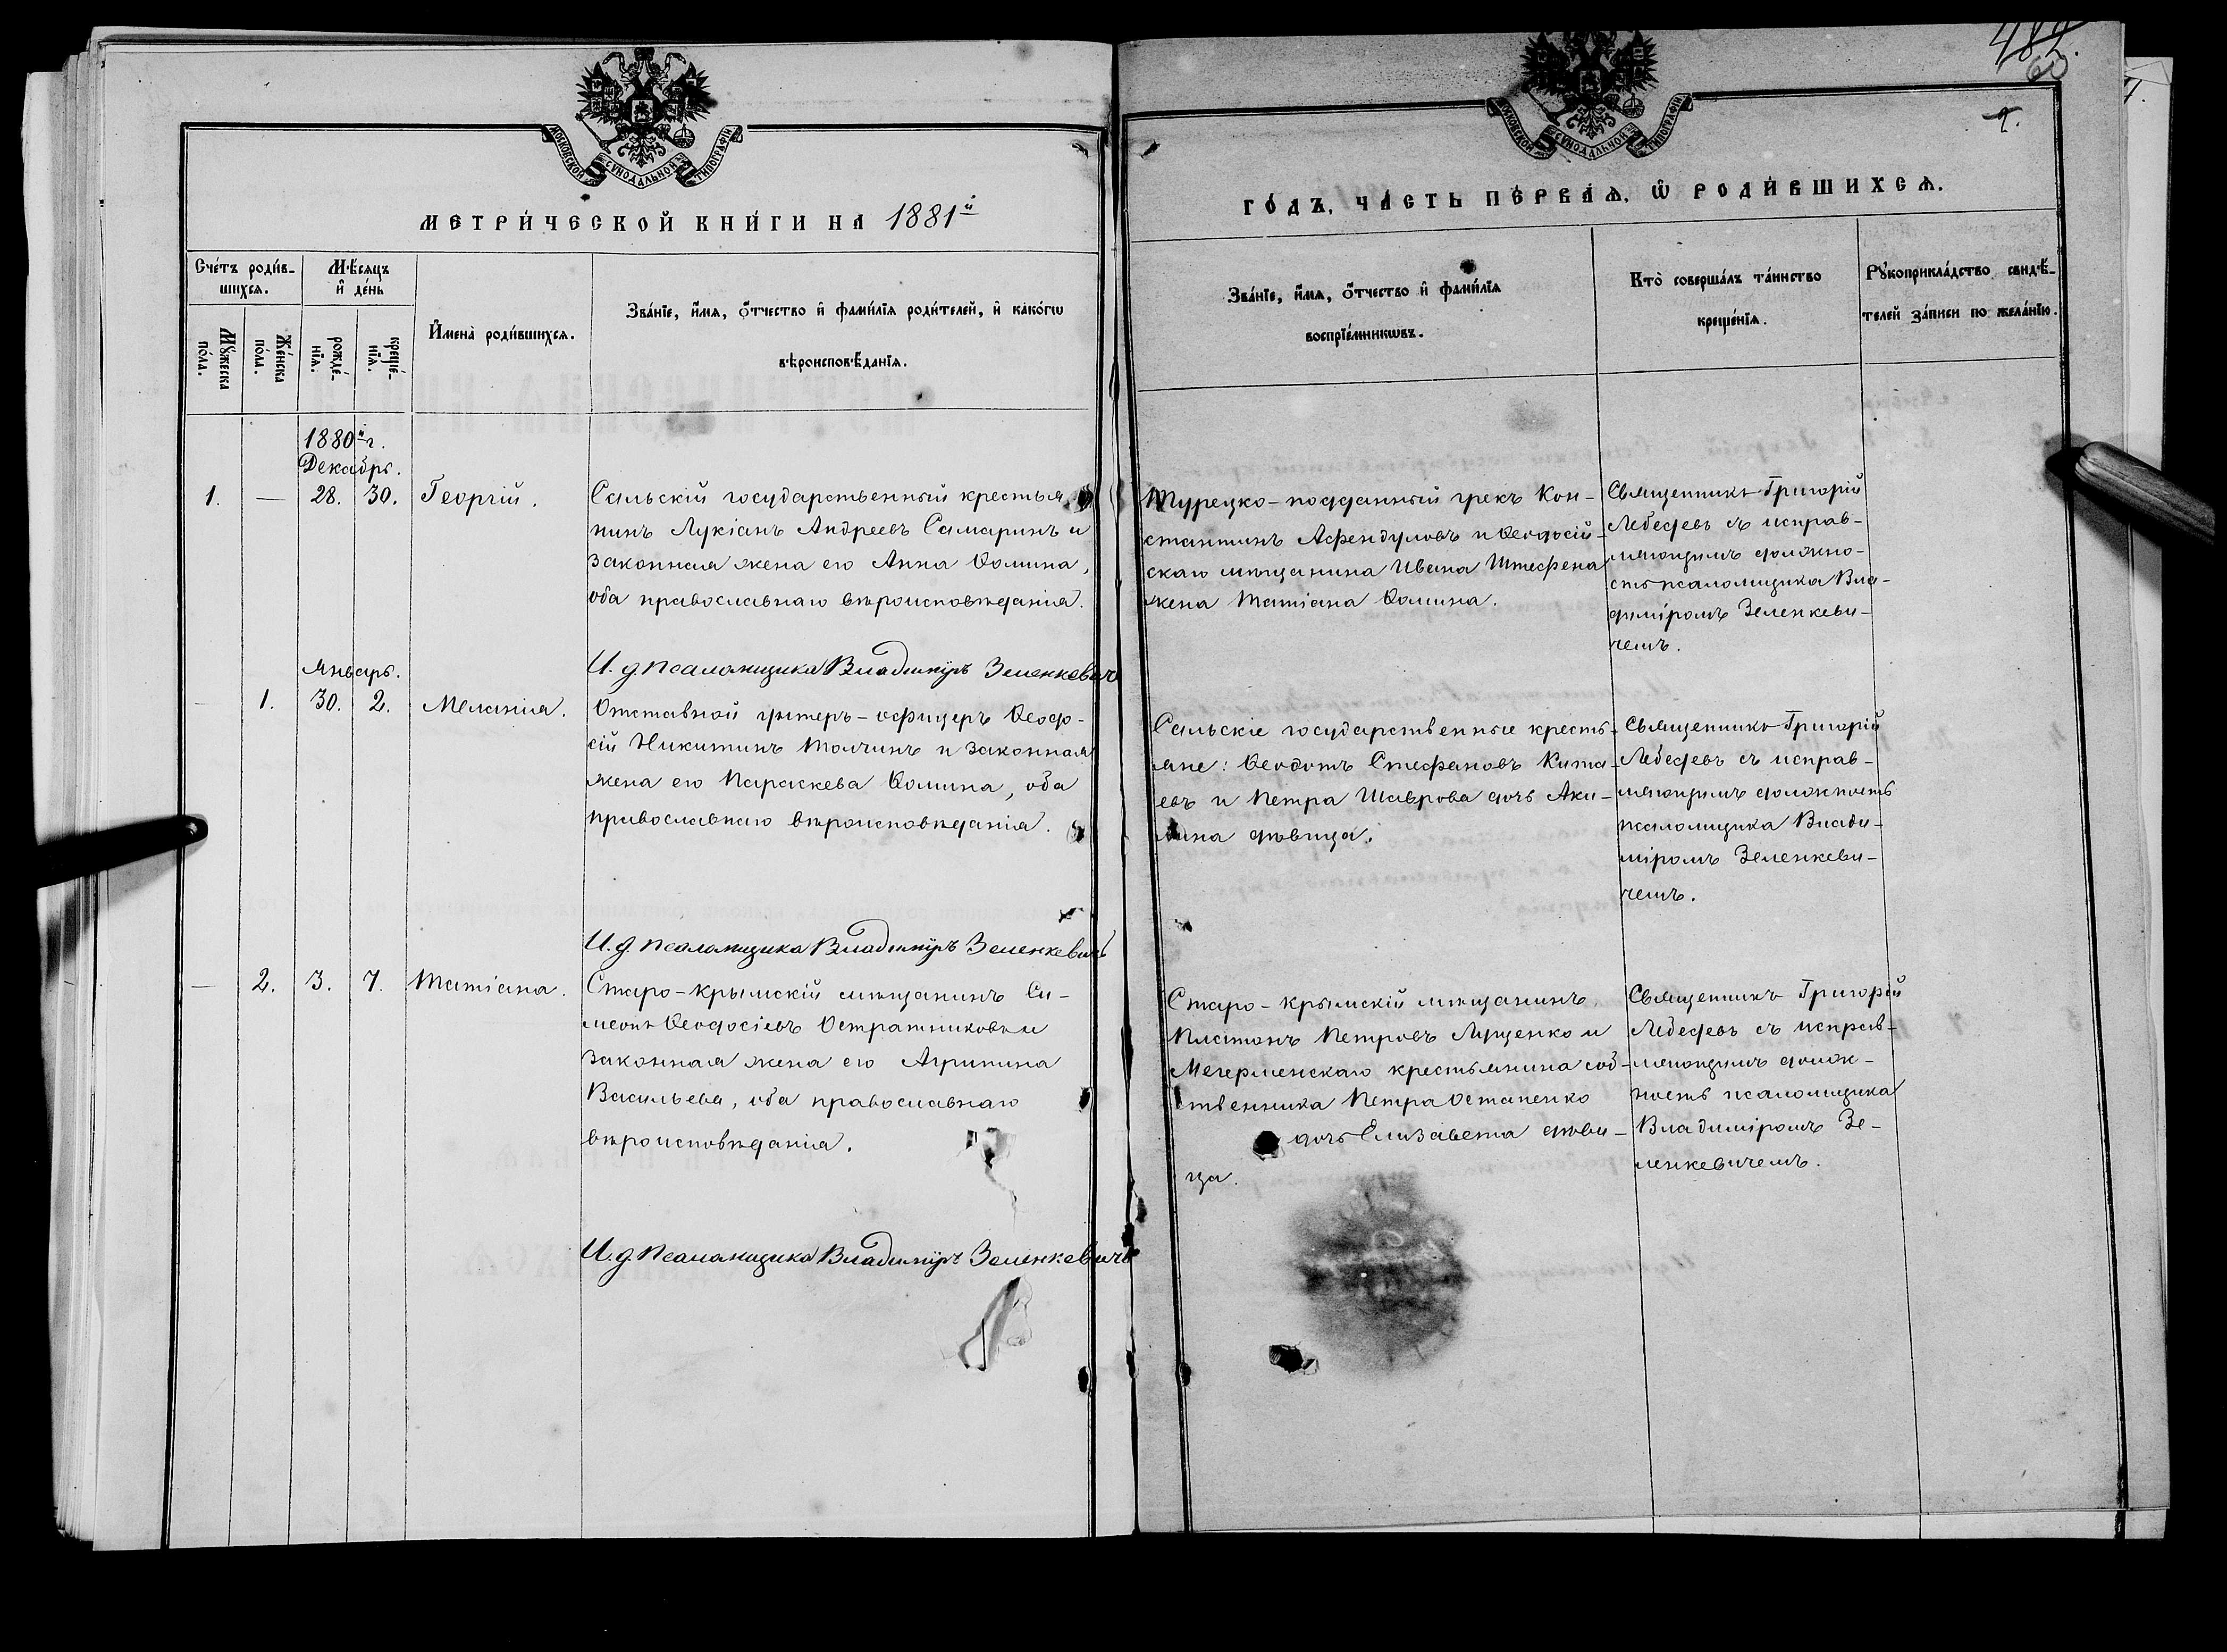 МОСКОВСКОЙ СУНОДАЛЬНОЙ ТИПОГРАФІИ
МЕТРИ́ЧЕСКОЙ КНИ́ГИ НА 1881й
Сче́тъ роди́в-
шихся.
Мѣ́сяцъ
и҆ де́нь
Мꙋ́жеска
по́ла.
Же́нска
по́ла.
рожде́-
нїѧ.
креще́-
нїѧ.
И҆мена̀ роди́вшихсѧ.
Зва́нїе, и҆́мѧ, ѻ҆́тчество и҆ фами́лїѧ роди́телей, и҆ како́гѡ
вѣроисповѣ́данїѧ.
1880й г.
Декабрь.
1. — 28. 30. Георгій.
Сальскій государственный крестья-
нинъ Лукіанъ Андреевъ Самаринъ и
законная жена его Анна Ѳомина,
оба православнаго вѣроисповѣданія.
И. д. псаломщика Владиміръ Зеленкевичъ
Январь.
— 1. 30. 2. Меланія.
Отставной унтеръ-офицеръ Ѳеодо-
сій Никитинъ Толчинъ и законная
жена его Параскева Ѳомина, оба
православнаго вѣроисповѣданія.
И. д. псаломщика Владиміръ Зеленкевичъ
— 2. 3. 7. Татіана.
Старо-крымскій мѣщанинъ Си-
меонъ Ѳеодосіевъ Остратниковъ и
законная жена его Агрипина
Васильева, оба православнаго
вѣроисповѣданія.
И. д. псаломщика Владиміръ Зеленкевичъ
484.
60
2.
МОСКОВСКОЙ СУНОДАЛЬНОЙ ТИПОГРАФІИ
ГО́ДЪ, ЧА́СТЬ ПЕ́РВАѦ, Ѡ РОДИ́ВШИХСѦ.
Зва́нїе, и҆́мѧ, ѻ҆́тчество и҆ фами́лїѧ
воспрїе́мникѡвъ.
Кто̀ соверша́лъ та́инство
креще́нїѧ.
Рꙋкоприкла́дство свидѣ́-
телей за́писи по жела́нїю.
Турецко-подданный грекъ Кон-
стантинъ Асфендуловъ и Ѳеодосій-
скаго мѣщанина Ивана Штефена
жена Татіана Ѳомина.
Священникъ Григорій
Лебедевъ съ исправ-
ляющимъ должно-
сть псаломщика Вла-
диміромъ Зеленкеви-
чемъ.
Сальскіе государственные кресть-
яне: Ѳеодотъ Стефановъ Кита-
евъ и Петра Шаврова дочь Аки-
лина дѣвица.
Священникъ Григорій
Лебедевъ съ исправ-
ляющимъ должность
псаломщика Влади-
міромъ Зеленкеви-
чемъ.
Старо-крымскій мѣщанинъ
Платонъ Петровъ Луценко и
Мегерменскаго крестьянина соб-
ственника Петра Остапенко
дочь Елизавета дѣви-
ца.
Священникъ Григорій
Лебедевъ съ исправ-
ляющимъ долж-
ность псаломщика
Владиміромъ Зе-
ленкевичемъ.